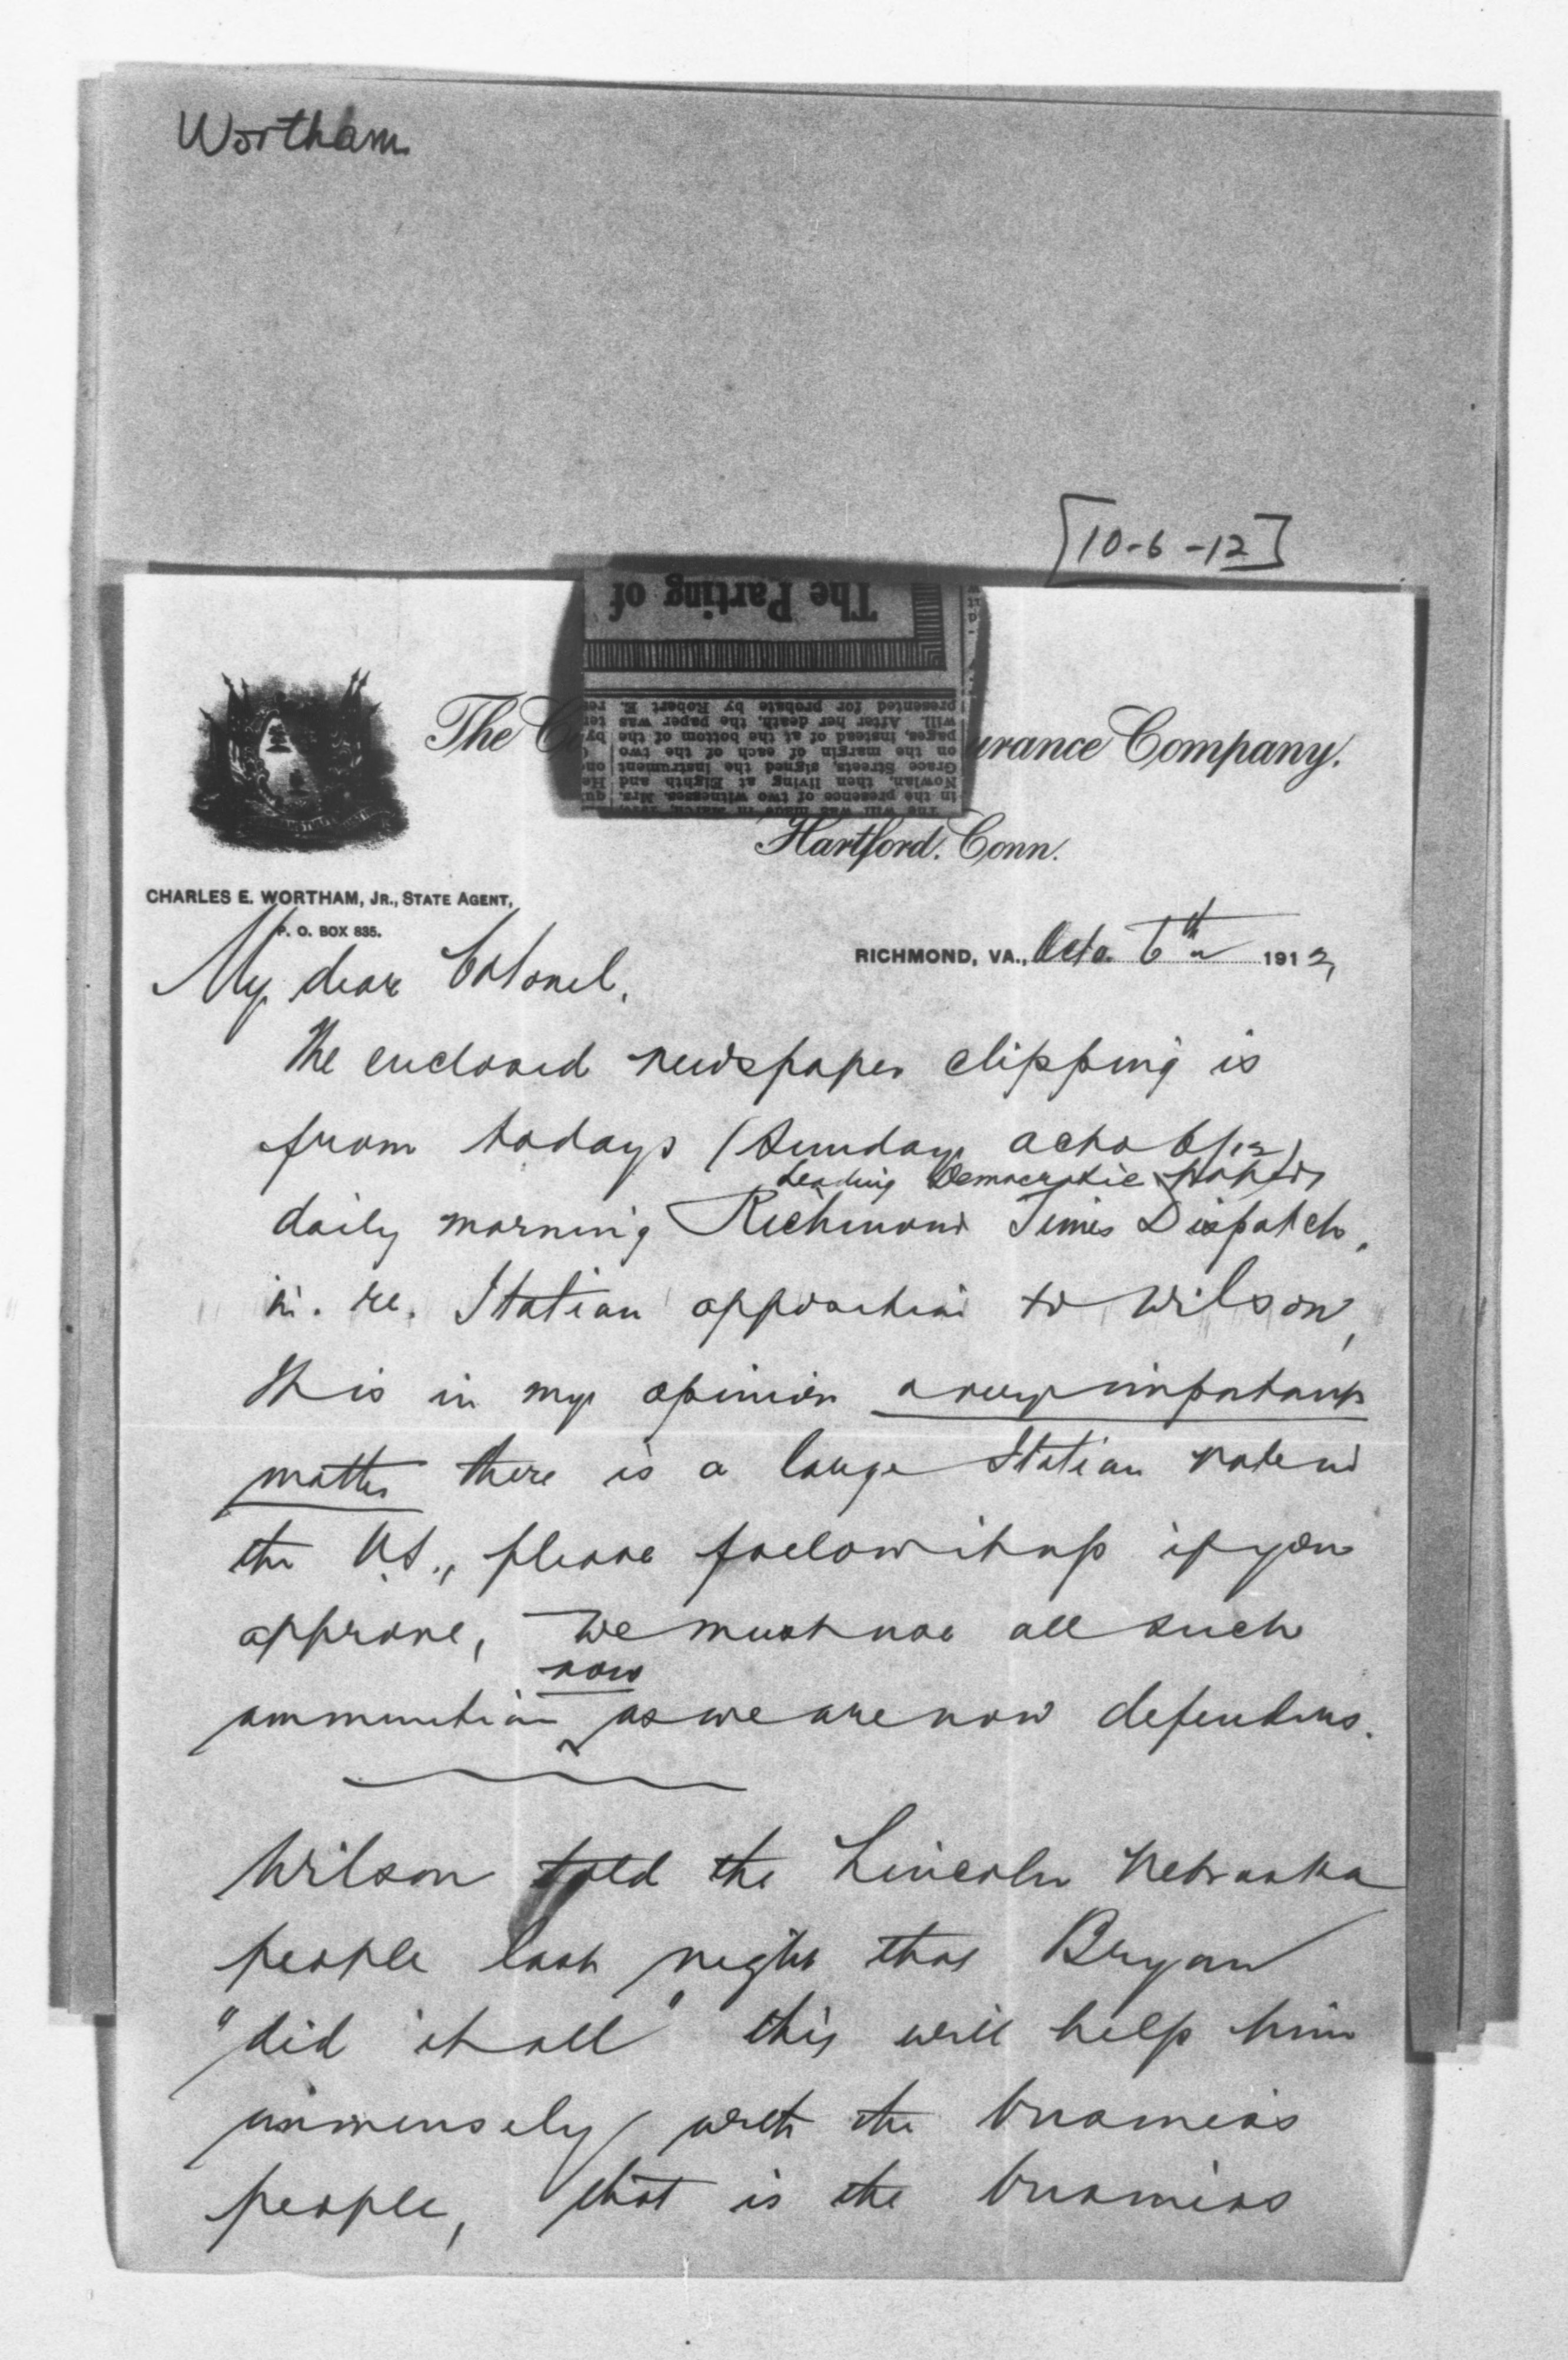 Wortham
[10-6-12]
The Parting of
presented for probate by Robert E.
will. After her death, the paper was
pages, instead of at the bottom of the
on the margin of each of the two
Grace Streets, signed the instrument
Nowlan, then living at Eighth and
in the presence of two witnesses. Mrs.
The will was made in March,
The C urance Company.
Hartford. Conn.
CHARLES E. WORTHAM, JR., STATE AGENT,
P. O. BOX 835.
RICHMOND, VA., Octo. 6th 1912
My dear Colonel,
The enclosed newspaper clipping is
from todays (Sunday octo 6/12)
Leading Democratic paper
daily morning Richmond Times Dispatch,
in. re. Italian opposition to Wilson,
this is in my opinion a very important
matter there is a large Italian vote in
the U.S., please follow it up if you
approve, We must use all such
now
ammunition as we are now defenders.
Wilson told the Lincoln Nebraska
people last night that Bryan
"did it all" this will help him
immensely with the business
people, that is the business